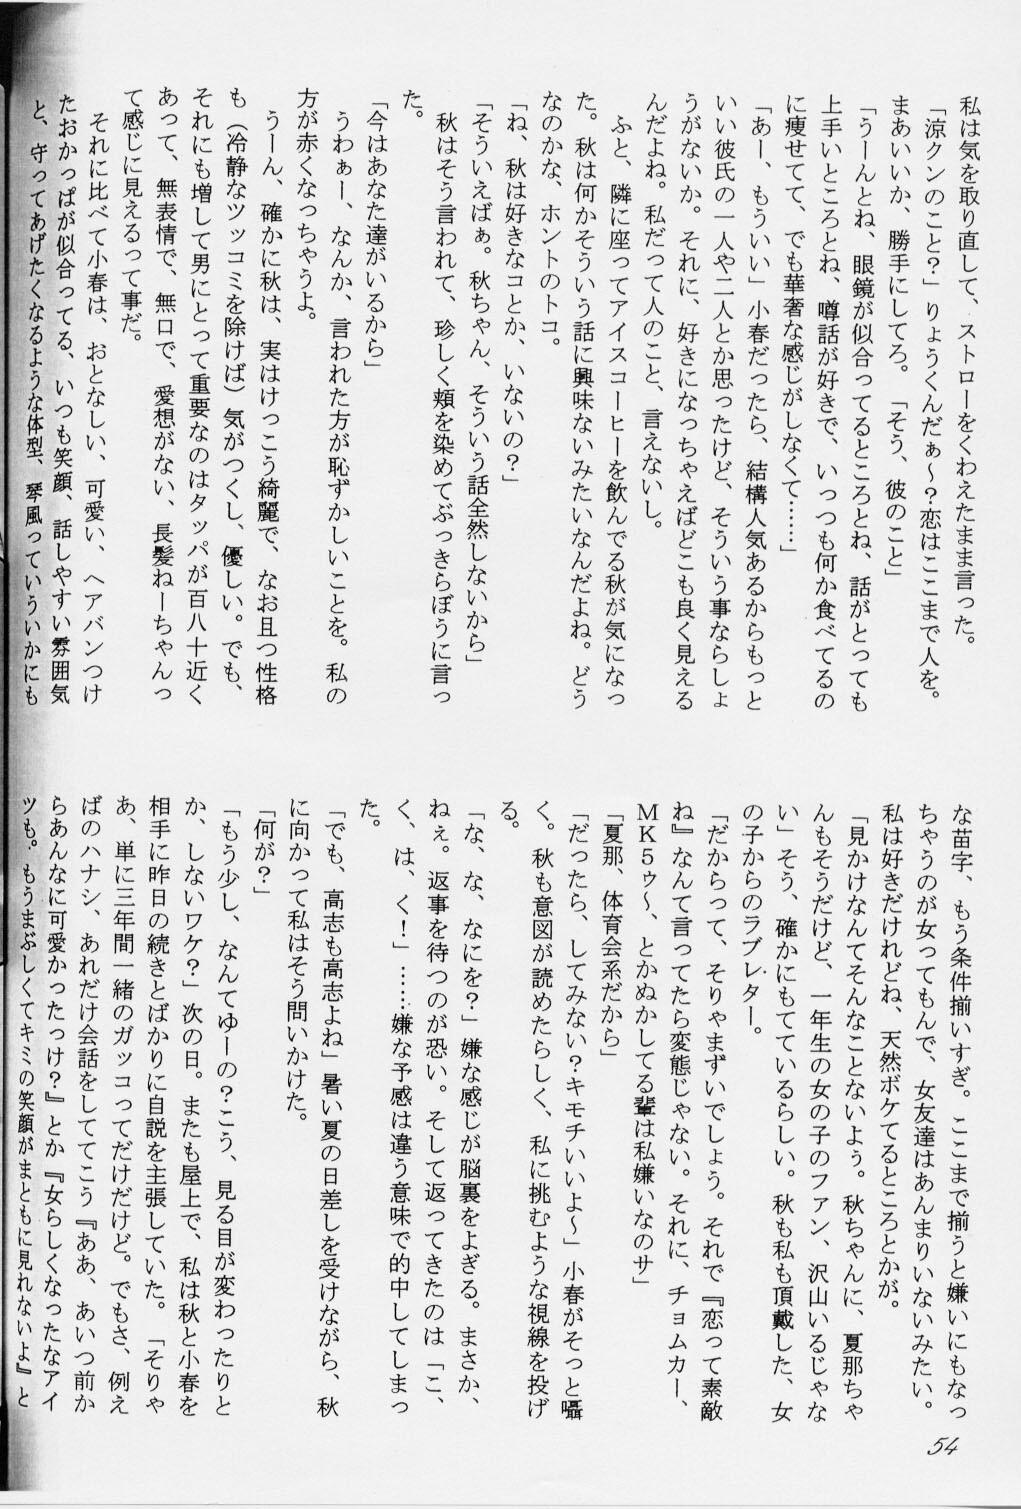 私は気を取り直して、ストローをくわえたまま言った。
「涼クンのこと？」りょうくんだぁ～？恋はここまで人を。
まあいいか、勝手にしてろ。「そう、彼のこと」
「うーんとね、眼鏡が似合ってるところとね、話がとっても
上手いところとね、噂話が好きで、いっつも何か食べてるの
に痩せてて、でも華奢な感じがしなくて……」
「あー、もういい」小春だったら、結構人気あるからもっと
いい彼氏の一人や二人とか思ったけど、そういう事ならしょ
うがないか。それに、好きになっちゃえばどこも良く見える
んだよね。私だって人のこと、言えないし。
ふと、隣に座ってアイスコーヒーを飲んでる秋が気になっ
た。秋は何かそういう話に興味ないみたいなんだよね。どう
なのかな、ホントのトコ。
「ね、秋は好きなコとか、いないの？」
「そういえばぁ。秋ちゃん、そういう話全然しないから」
秋はそう言われて、珍しく頬を染めてぶっきらぼうに言っ
た。
「今はあなた達がいるから」
うわぁー、なんか、言われた方が恥ずかしいことを。私の
方が赤くなっちゃうよ。
うーん、確かに秋は、実はけっこう綺麗で、なお且つ性格
も（冷静なツッコミを除けば）気がつくし、優しい。でも、
それにも増して男にとって重要なのはタッパが百八十近く
あって、無表情で、無口で、愛想がない、長髪ねーちゃんっ
て感じに見えるって事だ。
それに比べて小春は、おとなしい、可愛い、ヘアバンつけ
たおかっぱが似合ってる、いつも笑顔、話しやすい雰囲気
と、守ってあげたくなるような体型、琴風っていういかにも
な苗字、もう条件揃いすぎ。ここまで揃うと嫌いにもなっ
ちゃうのが女ってもんで、女友達はあんまりいないみたい。
私は好きだけれどね、天然ボケてるところとかが。
「見かけなんてそんなことないよう。秋ちゃんに、夏那ちゃ
んもそうだけど、一年生の女の子のファン、沢山いるじゃな
い」そう、確かにもてているらしい。秋も私も頂戴した、女
の子からのラブレター。
「だからって、そりゃまずいでしょう。それで『恋って素敵
ね』なんて言ってたら変態じゃない。それに、チョムカー、
MK5ゥ～、とかぬかしてる輩は私嫌いなのサ」
「夏那、体育会系だから」
「だったら、してみない？キモチいいよ～」小春がそっと囁
く。秋も意図が読めたらしく、私に挑むような視線を投げ
る。
「な、な、なにを？」嫌な感じが脳裏をよぎる。まさか、
ねぇ。返事を待つのが恐い。そして返ってきたのは「こ、
く、は、く！」……嫌な予感は違う意味で的中してしまっ
た。
「でも、高志も高志よね」暑い夏の日差しを受けながら、秋
に向かって私はそう問いかけた。
「何が？」
「もう少し、なんてゆーの？こう、見る目が変わったりと
か、しないワケ？」次の日。またも屋上で、私は秋と小春を
相手に昨日の続きとばかりに自説を主張していた。「そりゃ
あ、単に三年間一緒のガッコってだけだけど。でもさ、例え
ばのハナシ、あれだけ会話をしててこう『ああ、あいつ前か
らあんなに可愛かったっけ？』とか『女らしくなったなアイ
ツも。もうまぶしくてキミの笑顔がまともに見れないよ』と
54